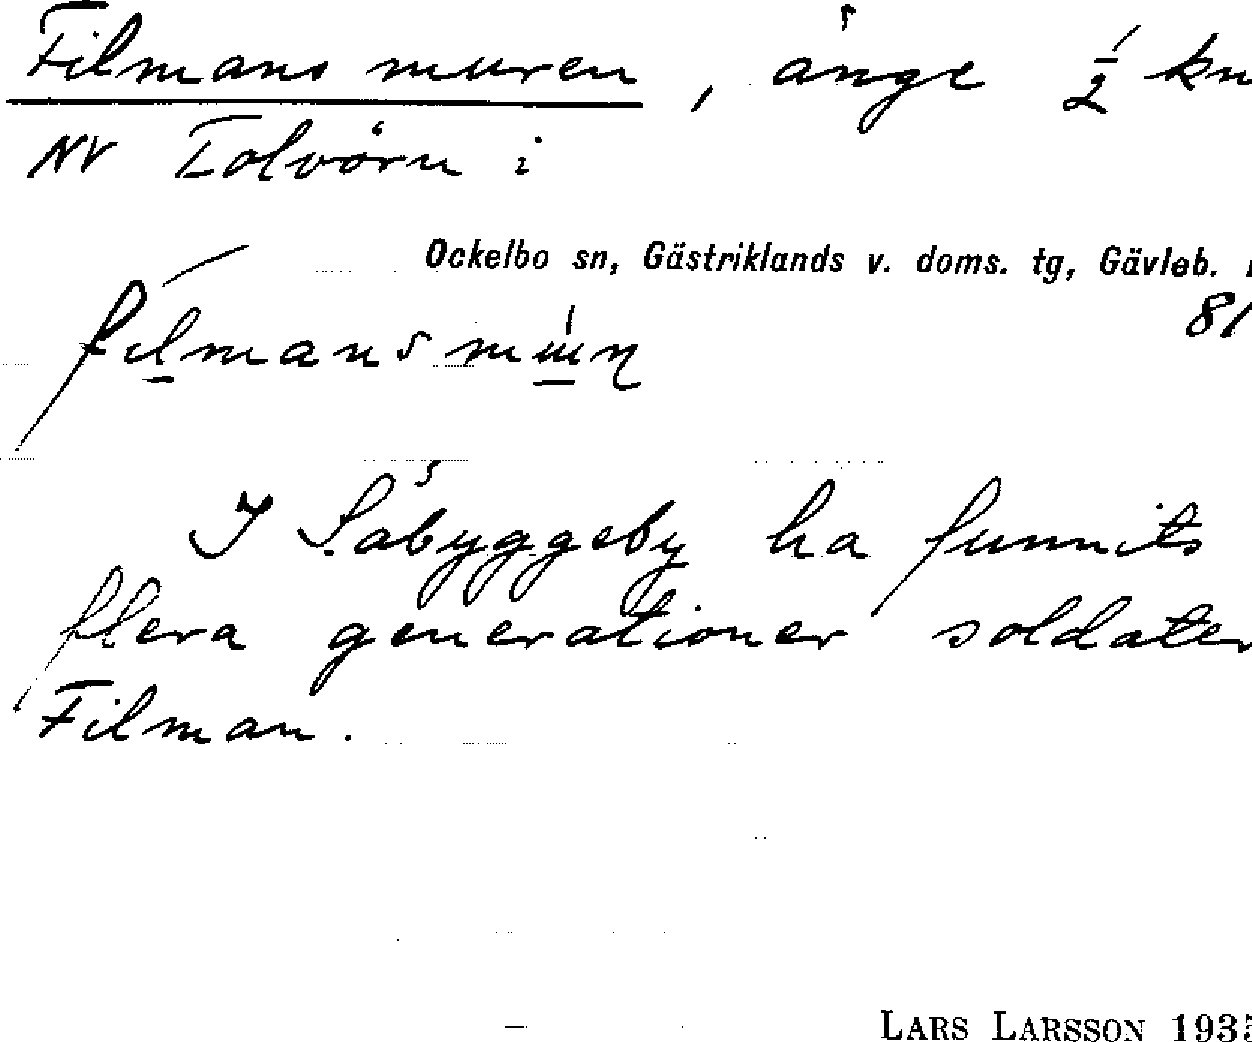 Filmansmuren, änge 1/2 km
NV Tolvörn i
Ockelbo sn, Gästriklands v. doms. tg, Gävleb.
81
I Säbyggeby ha funnits
flera generationer soldater
Filman.
LARS LARSSON 1935